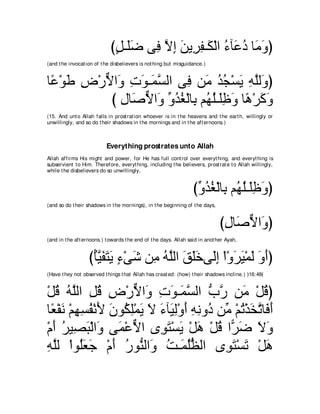 ﴿وَمَا دُعَآءُ الْكَـفِرِينَ إِلاَّ فِى ضَلَـلٍ﴾
(and the invocation of the disbelievers is nothing but misguidance.)
﴿وَللَّهِ يَسْجُدُ مَن فِى السَّمَـوَتِ وَالاٌّرْضِ طَوْعًا
وَكَرْهًا وَظِلَـلُهُم بِالْغُدُوِّ وَالاٌّصَالِ ﴾
(15. And unto Allah falls in prostration whoever is in the heavens and the earth, willingly or
unwillingly, and so do their shadows in the mornings and in the afternoons.)
Everything prostrates unto Allah
Allah affirms His might and power, for He has full control over everything, and everything is
subservient to Him. Therefore, everything, including the believers, prostrate to Allah willingly,
while the disbelievers do so unwillingly,
﴿وَظِلَـلُهُم بِالْغُدُوِّ﴾
(and so do their shadows in the mornings), in the beginning of the days,
﴿وَالاٌّصَالِ﴾
(and in the afternoons.) towards the end of the days. Allah said in another Ayah,
﴿أَوَ لَمْيَرَوْاْ إِلَىخَلَقَ اللَّهُ مِن شَىْءٍ يَتَفَيَّأُ﴾
(Have they not observed things that Allah has created: (how) their shadows incline.) )16:48(
﴿قُلْ مَن رَّبُّ السَّمَـوَتِ وَالاٌّرْضِ قُلِ اللَّهُ قُلْ
أَفَاتَّخَذْتُمْ مِّن دُونِهِ أَوْلِيَآءَ لاَ يَمْلِكُونَ لاًّنفُسِهِمْ نَفْعًا
وَلاَ ضَرًّا قُلْ هَلْ يَسْتَوِى الاٌّعْمَى وَالْبَصِيرُ أَمْ
هَلْ تَسْتَوِى الظُّلُمَـتُ وَالنُّورُ أَمْ جَعَلُواْ للَّهِ